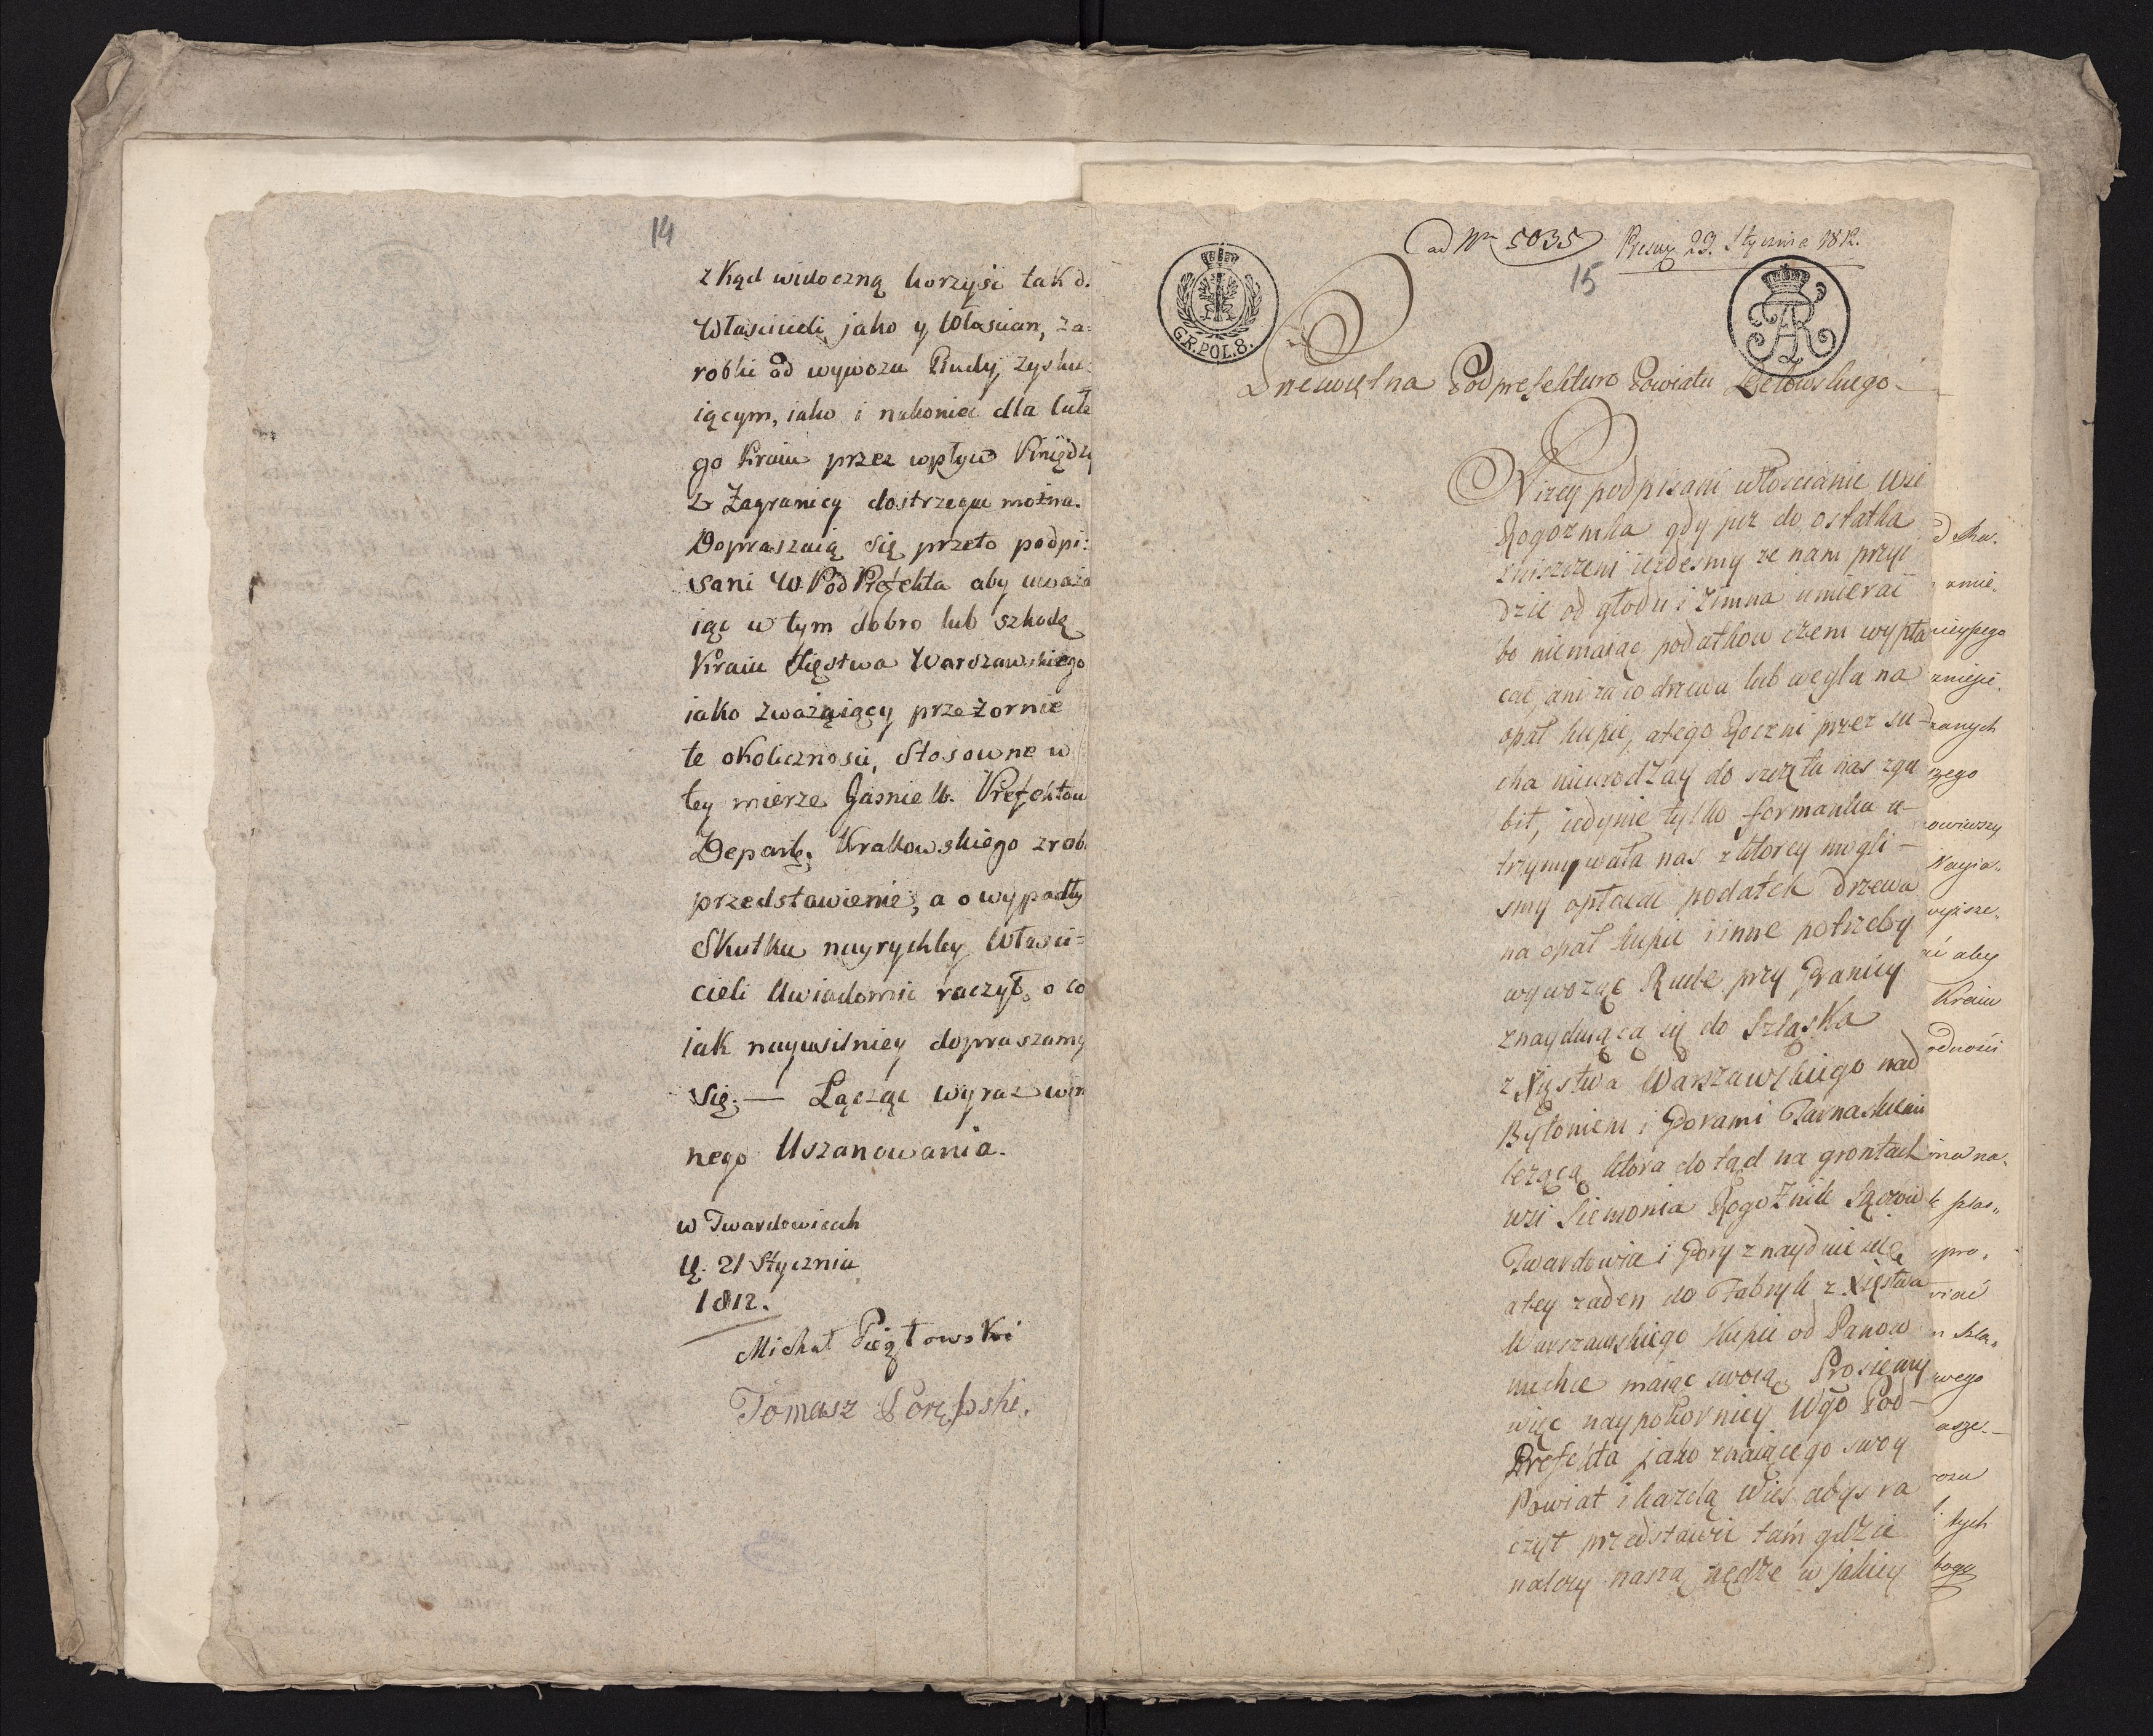 14
z Kąd widoczną korzyść tak d.
Właścicieli jako y Włościan, za=
robki od wywozu Rudy, zysku=
iącym, iako i nakoniec dla całe
go Kraiu przez wpływ Piniędzy
z Zagranicy dostrzegać można.
Dopraszaią się przeto podpi=
sani W. Pod Prefekta aby uważa
iąc w tym dobro lub szkodę
Kraiu Xięstwa Warszawskiego
jako zważaiący przezornie
te okoliczności, Stosowne w
tey mierze Jaśnie W. Prefektow
Depart. Krakowskiego zrob.
przedstawienie, a o wypadły
Skutku nayrychley Właści=
cieli Uwiadomić raczył, o co
iak nayusilniey dopraszamy
się. — Łącząc wyraz win
nego Uszanowania.
w Twardowicach
d. 21 Stycznia
1812.
Michał Piątowski
Tomasz Porębski.
ad Nr 5035 Presen 23. Stycznia 1812.
15
G.R.POL.8.
Prześwietna Podprefekturo Powiatu Lelowskiego
Niżey podpisani włościanie wsi
Rogoznika gdy juz do ostatka
zniszczeni iezdesmy ze nam przyi
dzie od głodu i zimna umierać
bo niemaiąc podatkow czem wypła
cać, ani za co drzewa lub węgla na
opał kupić, a tego Roczni przez su-
cha nieurodzay do szczętu nas zgu
bił, iedynie tylko formanka u-
trzymywała nas z ktorey mogli-
smy opłacać podatek drzewa
na opał kupić i inne potrzeby
wywoząc Rude przy Granicy
znayduiącą się do Szląska
z Xięstwa Warszawskiego nad
Bytoniem i Gorami Tarnaskiemi
lezącą ktora do tąd na grontach
wsi Siemonia Rogoznik Sączow
Twardowice i Gory znayduie się
a tey zaden do Fabryk z Xięstwa
Warszawskiego Kupić od Panow
niechce maiąc swoią, Prosiemy
więc naypokorniey Wgo Pod-
Prefekta jako znaiącego swoy
Powiat i kazdą Wies abys ra
czył przedstawić tam gdzie
nalezy naszą nędze w jakiey